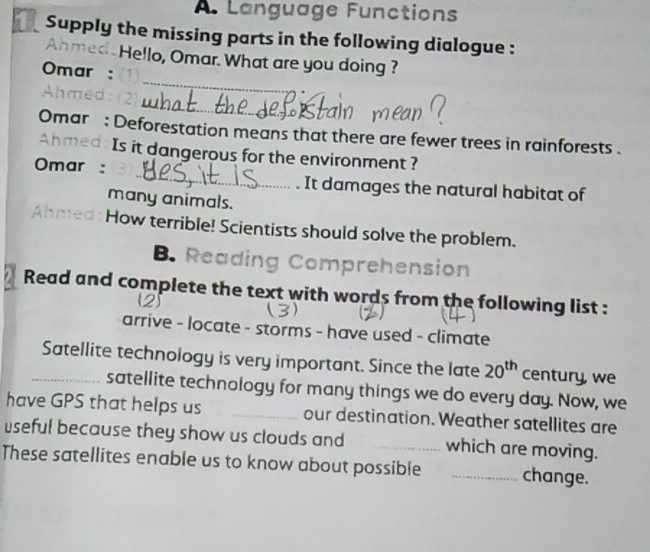 A. Language Functions
1 Supply the missing parts in the following dialogue :
Ahmed: Hello, Omar. What are you doing ?
Omar : (1)
Ahmed: (2) what the deforstain mean?
Omar : Deforestation means that there are fewer trees in rainforests .
Ahmed: Is it dangerous for the environment ?
Omar : (3) Yes, it is . It damages the natural habitat of
many animals.
Ahmed: How terrible! Scientists should solve the problem.
B. Reading Comprehension
2 Read and complete the text with words from the following list :
(2) (3) (4)
arrive - locate - storms - have used - climate
Satellite technology is very important. Since the late 20th century, we
satellite technology for many things we do every day. Now, we
have GPS that helps us our destination. Weather satellites are
useful because they show us clouds and which are moving.
These satellites enable us to know about possible change.